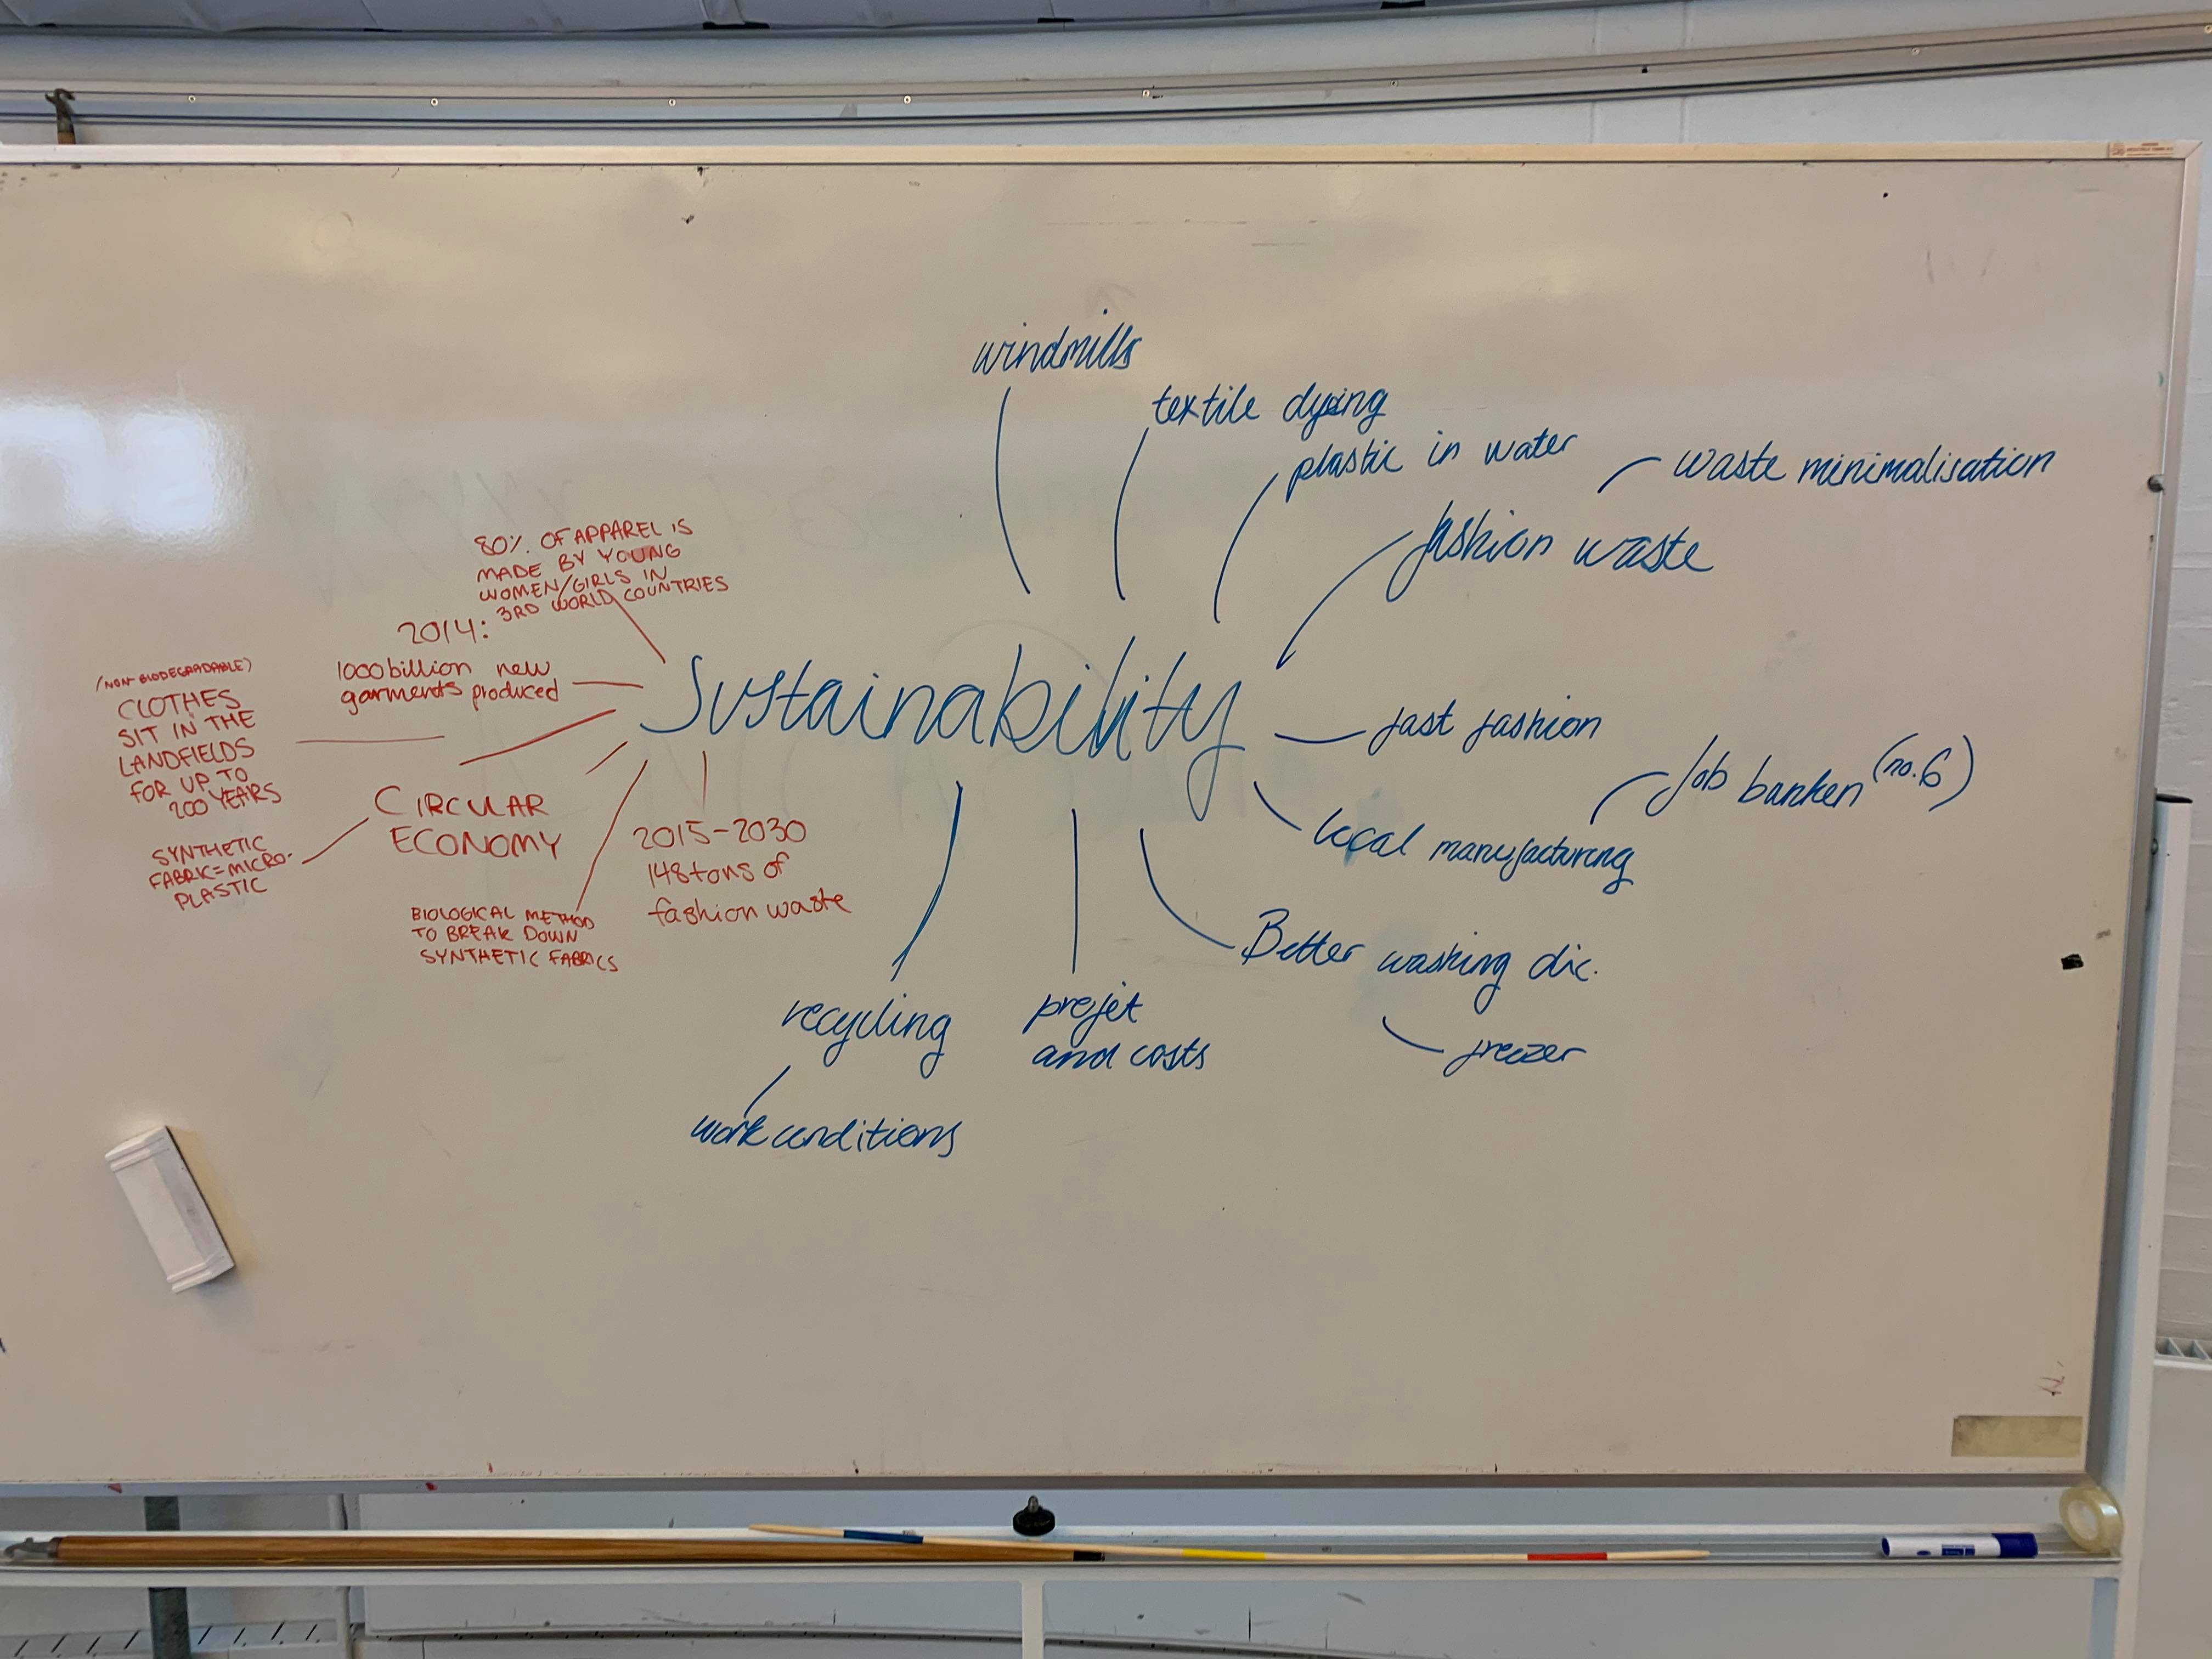 windmills
textile dyeing
plastic in water
waste minimalisation
fashion waste
80% OF APPAREL IS
MADE BY YOUNG
WOMEN/GIRLS IN
3RD WORLD COUNTRIES
2014:
1000 billion new
garments produced
(NON-BIODEGRADABLE)
CLOTHES
SIT IN THE
LANDFIELDS
FOR UP TO
200 YEARS
Sustainability
fast fashion
Job banken (no. 6)
local manufacturing
CIRCULAR
ECONOMY
SYNTHETIC
FABRIC=MICRO-
PLASTIC
2015-2030
148 tons of
fashion waste
BIOLOGICAL METHOD
TO BREAK DOWN
SYNTHETIC FABRICS
Better washing
freezer
recycling
and costs
work conditions